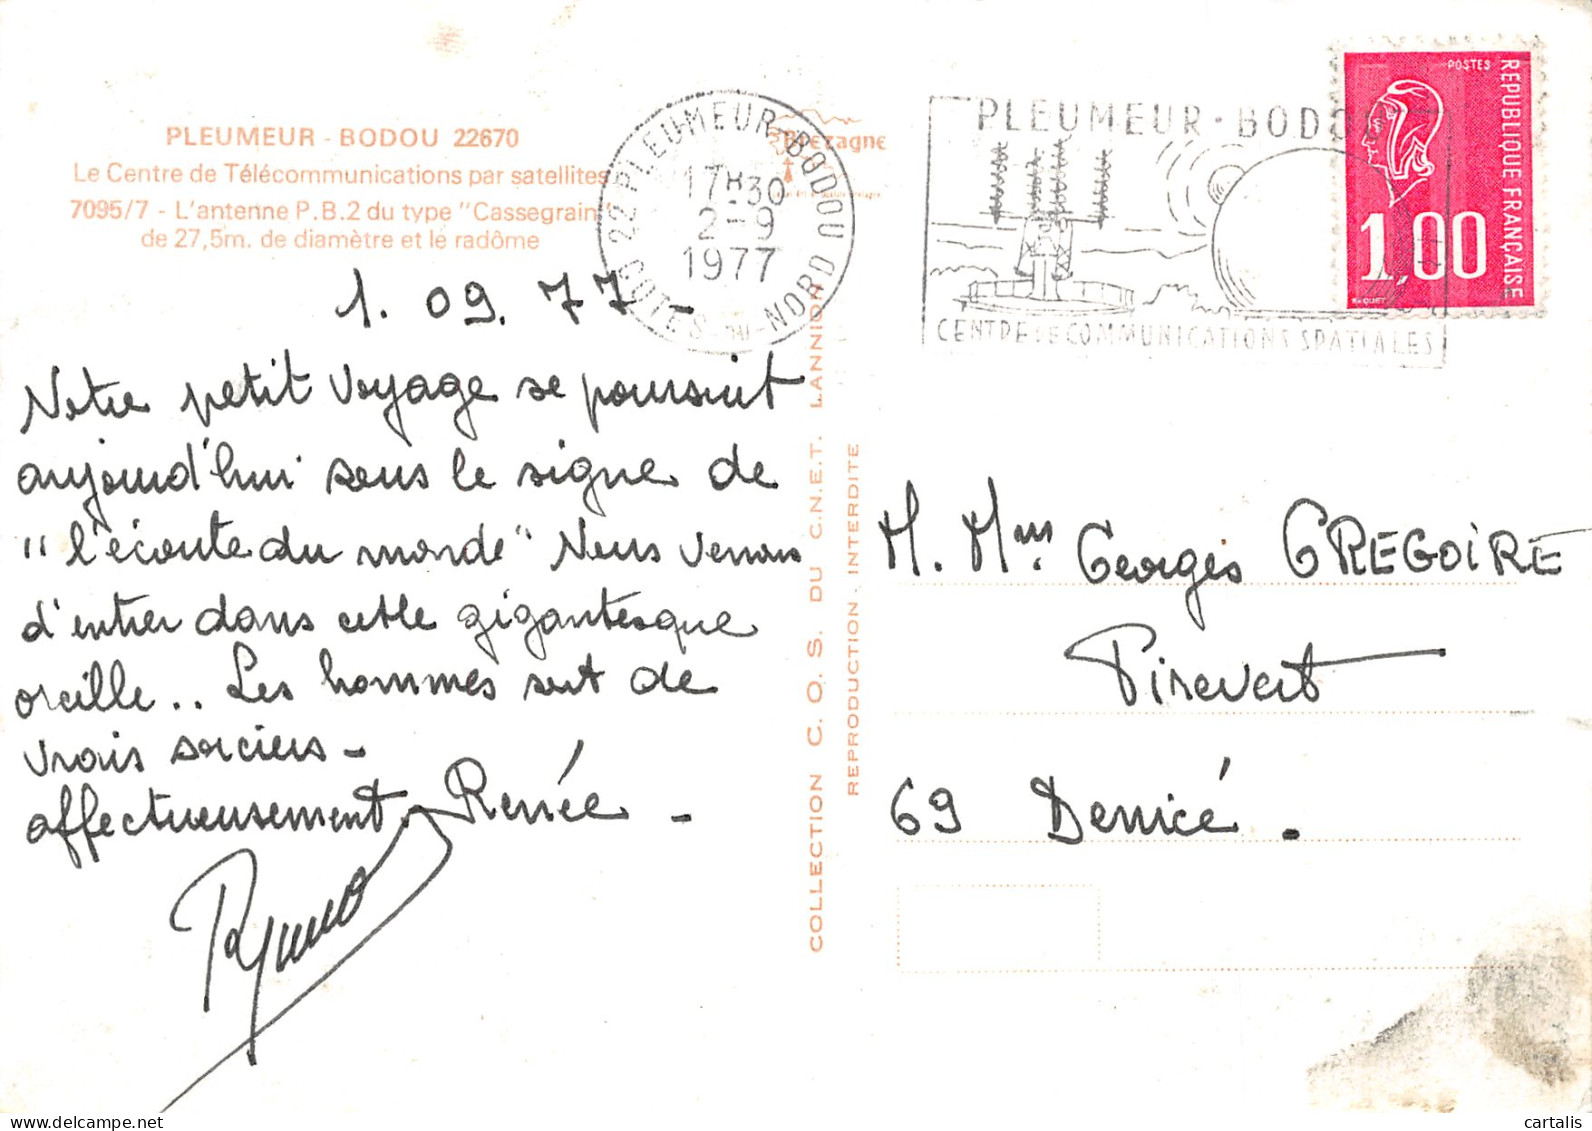 PLEUMEUR - BODOU 22670
Le Centre de Télécommunications par satellites
7095/7 - L'antenne P.B.2 du type "Cassegrain"
de 27,5m. de diamètre et le radôme
Bretagne
22 PLEUMEUR-BODOU
17H30
2-9
1977
COTES-DU-NORD
PLEUMEUR-BODOU
CENTRE DE COMMUNICATIONS SPATIALES
POSTES
REPUBLIQUE FRANÇAISE
1,00
BEQUET
1. 09. 77 -
Notre petit voyage se poursuit
aujourd'hui sous le signe de
"l'écoute du monde" Nous venons
d'entrer dans cette gigantesque
oreille.. Les hommes sont de
vrais sorciers -
affectueusement. Renée -
COLLECTION C.O.S. DU C.N.E.T. LANNION
REPRODUCTION INTERDITE
M. Mme Georges GREGOIRE
Pirevert
69 Denicé -
cartalis